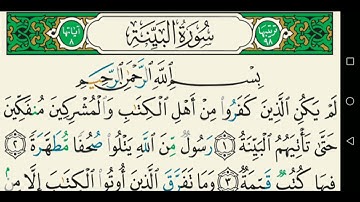 ترتيبها ٩٨ سُورَةُ الْبَيِّنَةِ آياتها ٨
بِسْمِ اللَّهِ الرَّحْمَٰنِ الرَّحِيمِ
لَمْ يَكُنِ الَّذِينَ كَفَرُوا مِنْ أَهْلِ الْكِتَابِ وَالْمُشْرِكِينَ مُنفَكِّينَ
حَتَّىٰ تَأْتِيَهُمُ الْبَيِّنَةُ ١ رَسُولٌ مِّنَ اللَّهِ يَتْلُوا صُحُفًا مُّطَهَّرَةً ٢
فِيهَا كُتُبٌ قَيِّمَةٌ ٣ وَمَا تَفَرَّقَ الَّذِينَ أُوتُوا الْكِتَابَ إِلَّا مِن